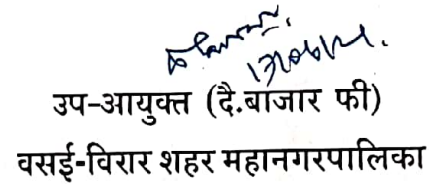 उप-आयुक्त (दै.बाजार फी)
वसई-विरार शहर महानगरपालिका